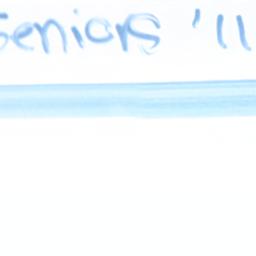 Seniors '11